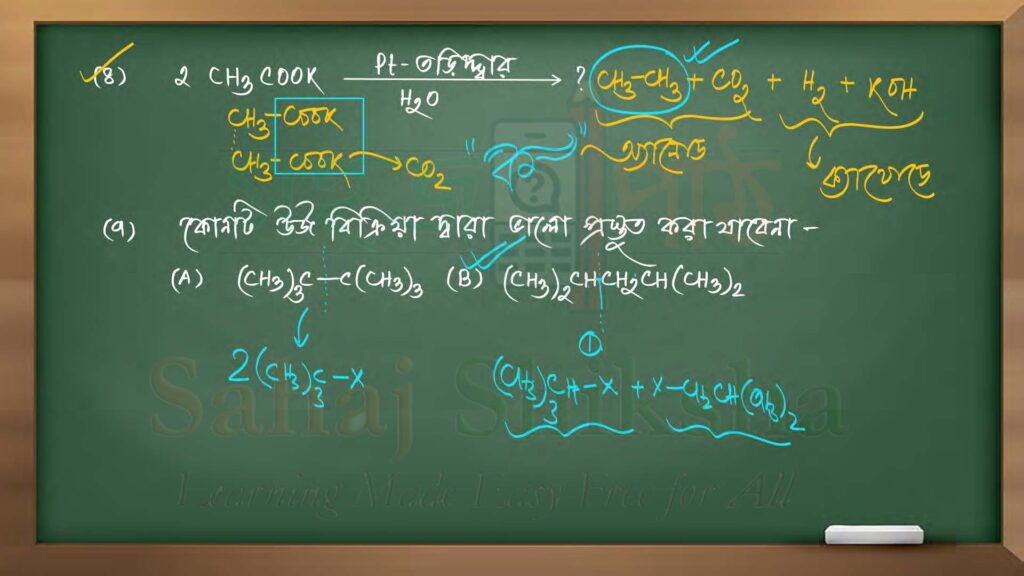 (৪) 2 CH3COOK Pt-তড়িদ্দ্বার H2O → ? CH3-CH3 + CO2 + H2 + KOH
CH3-COOK
CH3-COOK → CO2 "ক" অ্যানোড ক্যাথোডে
(৭) কোনটি উর্জ বিক্রিয়া দ্বারা ভালো প্রস্তুত করা যাবেনা -
(A) (CH3)3C-C(CH3)3 (B) (CH3)2CHCH2CH(CH3)2
①
2(CH3)3C-X (CH3)3CH-X + X-CH2CH(CH3)2
Sahaj Shiksha
Learning Made Easy Free for All